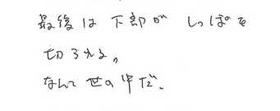 最後は下部が しっぽを
切られる。
なんて世の中だ。